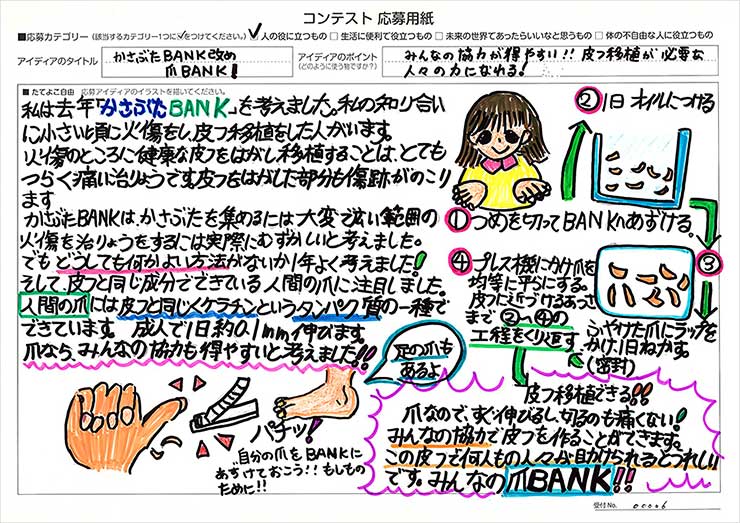 コンテスト 応募用紙
■応募カテゴリー（該当するカテゴリー1つに✓をつけてください。） ✓人の役に立つもの □生活に便利で役立つもの □未来の世界であったらいいなと思うもの □体の不自由な人に役立つもの
アイディアのタイトル
かさぶたBANK改め
爪BANK!
アイディアのポイント
（どのように使う物ですか？）
みんなの協力が得やすい!!皮フ移植が必要な
人々の力になれる!
■たてよこ自由 応募アイディアのイラストを描いてください。
私は去年「かさぶたBANK」を考えました。私の知り合い
に小さい頃に火傷をし、皮フ移植をした人がいます。
火傷のところに健康な皮フをはがし移植することは、とても
つらく痛い治りょうです。皮フをはがした部分も傷跡がのこり
ます
かさぶたBANKは、かさぶたを集めるには大変で広い範囲の
火傷を治りょうをするには実際にむずかしいと考えました。
でもどうしても何かよい方法がないか1年よく考えました!
そして、皮フと同じ成分でできている人間の爪に注目しました。
人間の爪には皮フと同じくケラチンというタンパク質の一種で
できています。 成人で1日約0.1mm伸びます。
爪なら、みんなの協力も得やすいと考えました!!
足の爪も
あるよ
パチッ!
自分の爪をBANKに
あずけておこう!!もしもの
ために!!
①つめを切ってBANKへあずける。
②1日オイルにつける
③
ふやけた爪にラップを
かけ、1日ねかす。
(密封)
④プレス機にかけ爪を
均等に平らにする。
皮フに近づけるあつさ
まで②〜④の
工程をくり返す
皮フ移植できる!!
爪なので、すぐ伸びるし、切るのも痛くない!
みんなの協力で皮フを作ることができます。
この皮フで何人もの人々が助けられるとうれしい
です。みんなの爪BANK!!
受付No. 00006